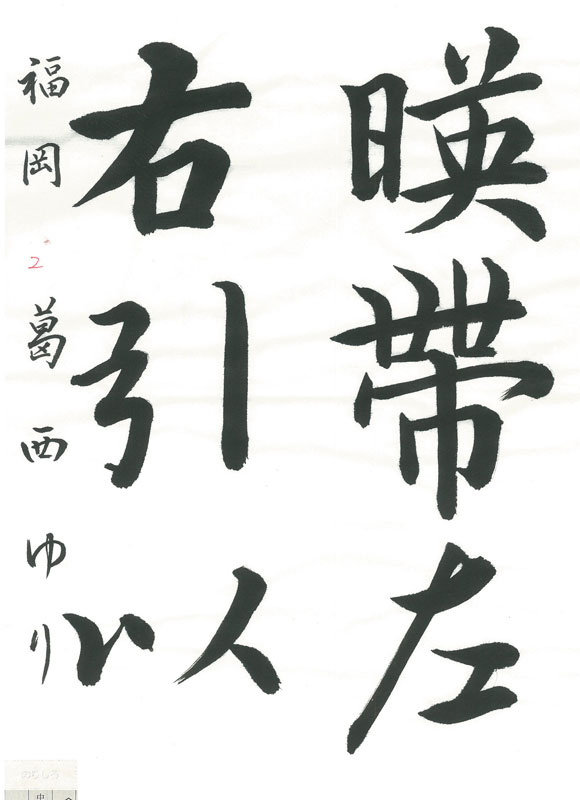 暎帶左
右引以
福岡 2 葛西ゆり
のむし
中